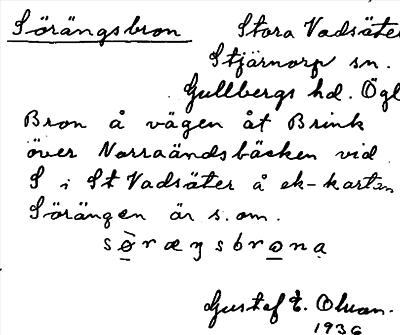 Sörängsbron Stora Vadsäte
Stjärnorp sn.
Gullbergs hd. Ögl
Bron å vägen åt Brink
över Norraändsbäcken vid
S i St Vadsäter å ek-kartan
Sörängen är s. om.
Gustef E.
1936